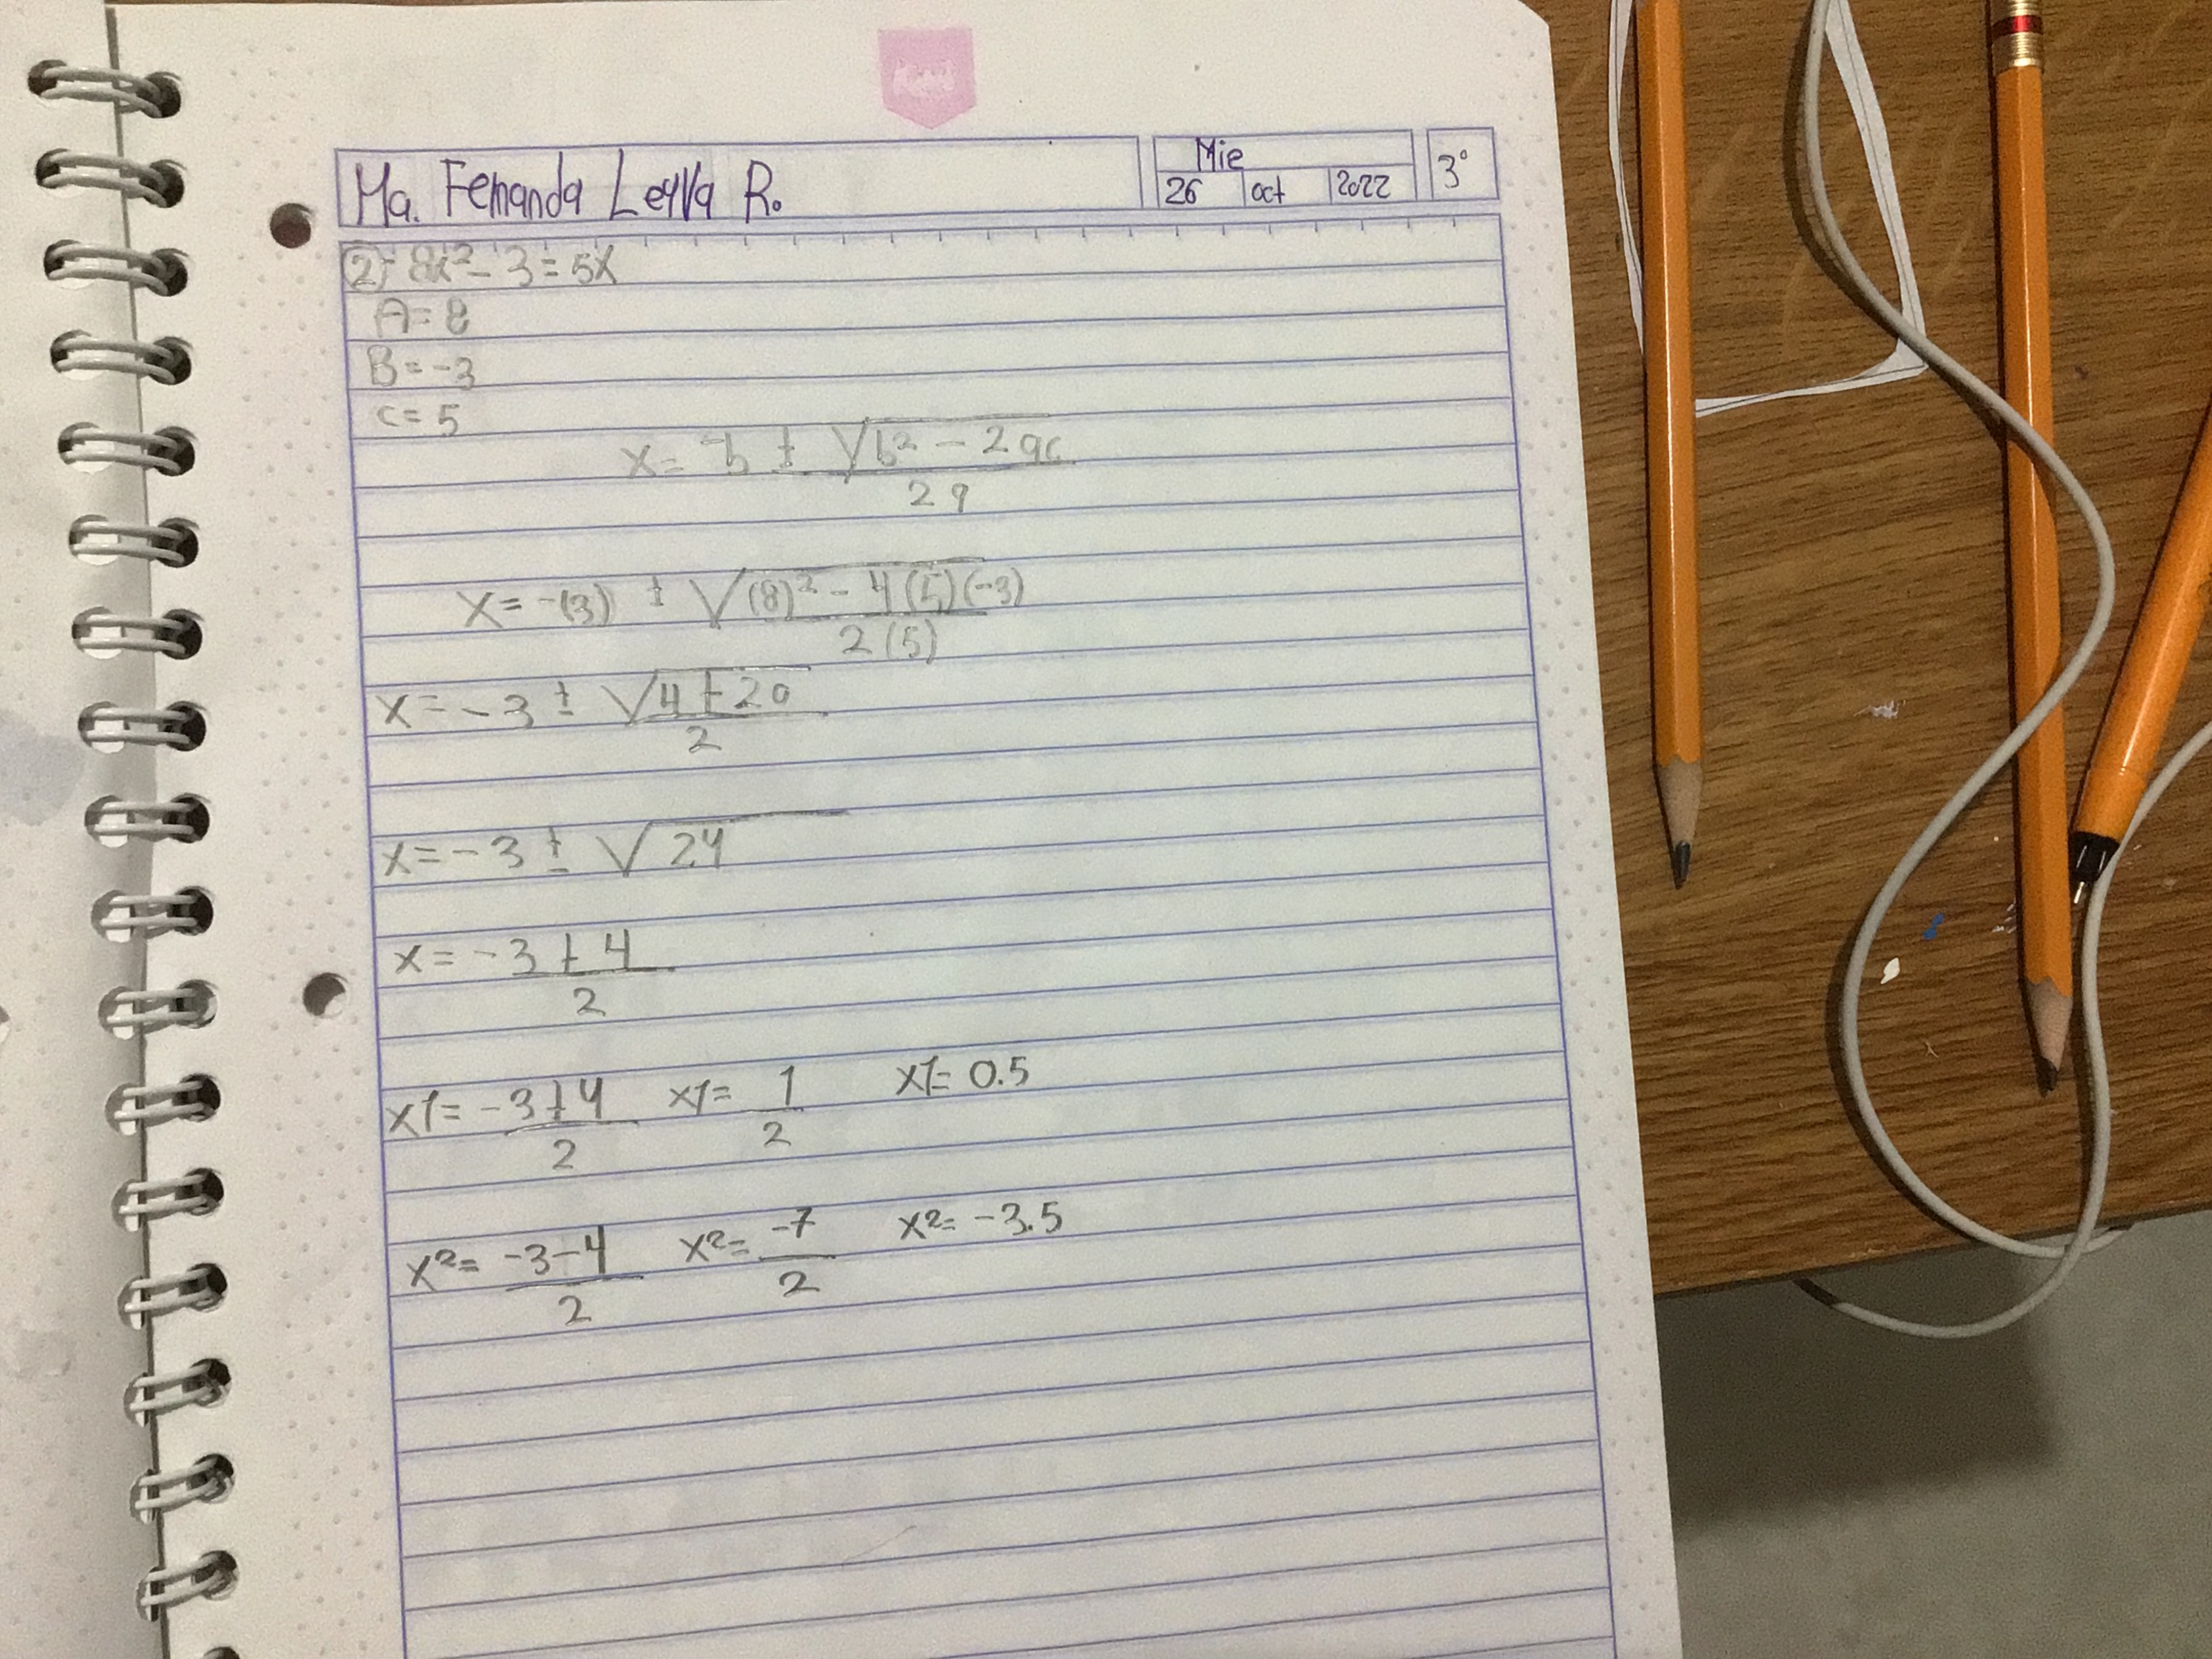 Ma. Fernanda Leyva R.
Mie
26 oct 2022
3°
2) 8x² - 3 = 5x
A = 8
B = -3
c = 5
x = -b ± √b² - 2ac
2a
x = -(3) ± √(8)² - 4(5)(-3)
2(5)
x = -3 ± √4+20
2
x = -3 ± √24
x = -3 + 4
2
x1 = -3+4 x1 = 1 x1 = 0.5
2 2
x2 = -3-4 x2 = -7 x2 = -3.5
2 2